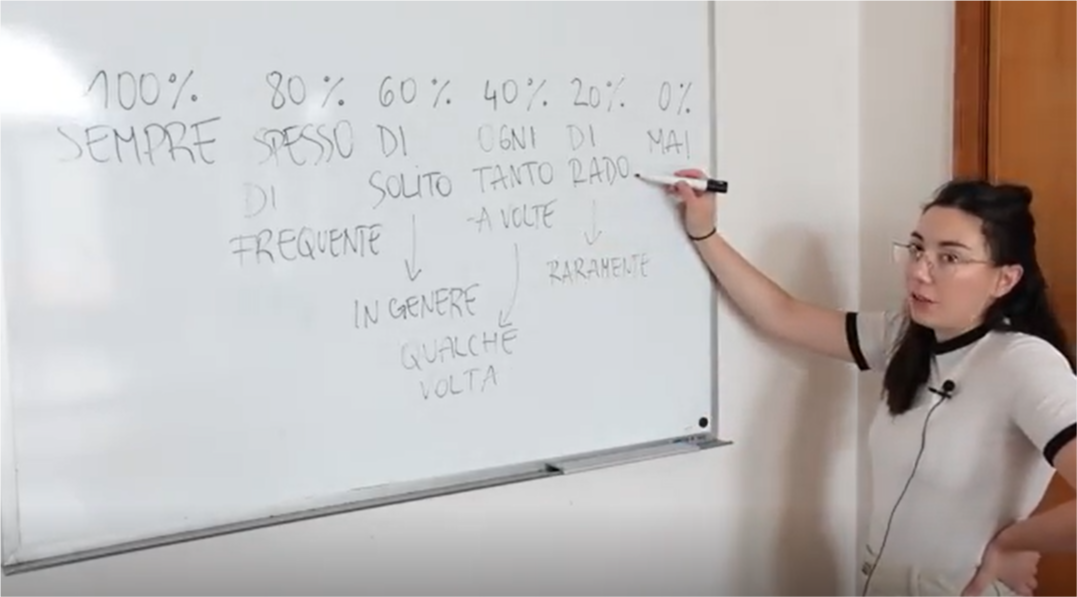 100% 80% 60% 40% 20% 0%
SEMPRE SPESSO DI OGNI DI MAI
DI SOLITO TANTO RADO
FREQUENTE -A VOLTE
IN GENERE RARAMENTE
QUALCHE
VOLTA